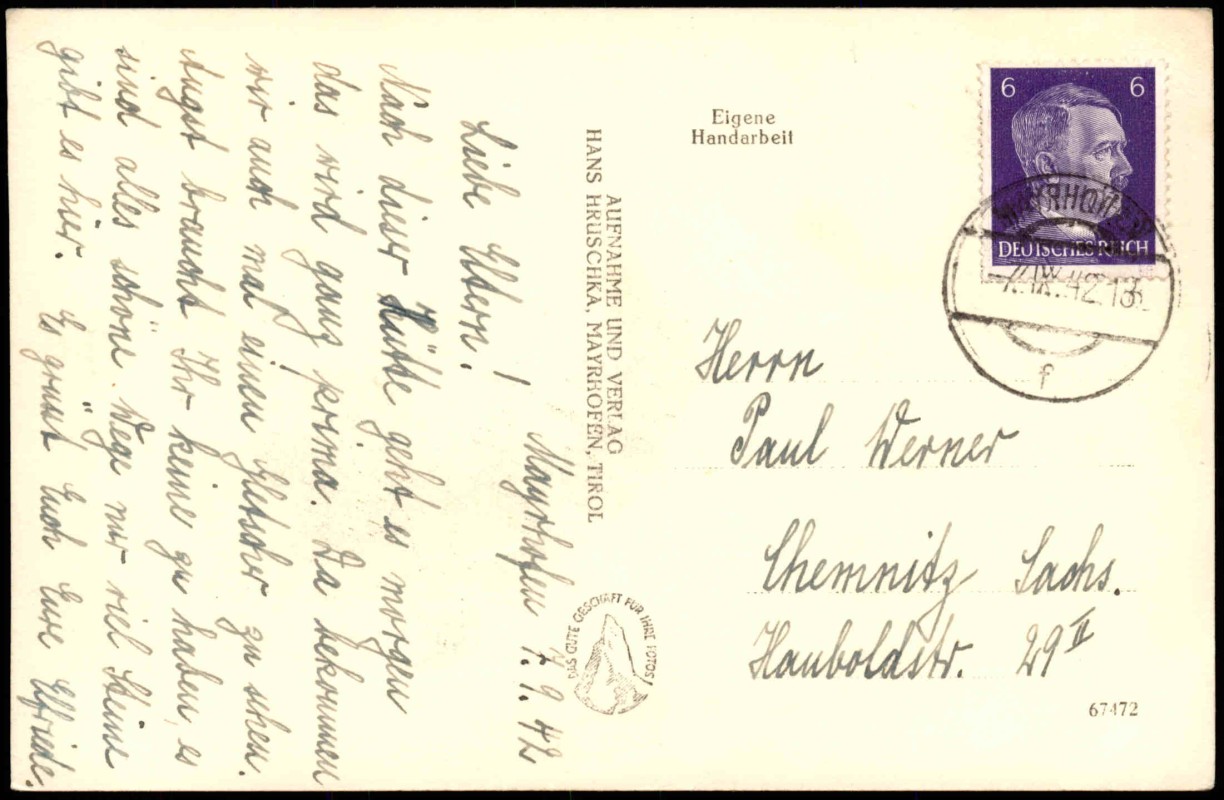 Mayrhofen 7. 9. 42
Liebe Eltern!
Nach dieser Hütte geht es morgen
das wird ganz prima. Da bekommen
wir auch mal einen Gletscher zu sehen.
Angst braucht Ihr keine zu haben, es
sind alles schöne Wege nur viel Steine
gibt es hier. Es grüsst Euch Eure Elfriede.
AUFNAHME UND VERLAG
HANS HRUSCHKA, MAYRHOFEN, TIROL
DAS GUTE GESCHÄFT FÜR IHRE FOTOS!
Eigene
Handarbeit
6 6
DEUTSCHES REICH
MAYRHOFEN
7.IX.42.13
f
Herrn
Paul Werner
Chemnitz Sachs.
Hauboldstr. 29 II
67472